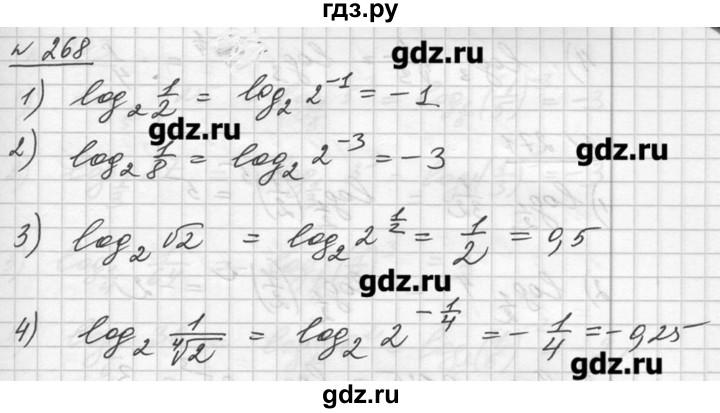 гдз.ру
№ 268
gdz.ru
1) log₂ 1/2 = log₂ 2⁻¹ = -1
gdz.ru
2) log₂ 1/8 = log₂ 2⁻³ = -3
gdz.ru
3) log₂ √2 = log₂ 2^(1/2) = 1/2 = 0,5
gdz.ru
4) log₂ 1/∜2 = log₂ 2^(-1/4) = -1/4 = -0,25
gdz.ru
gdz.ru